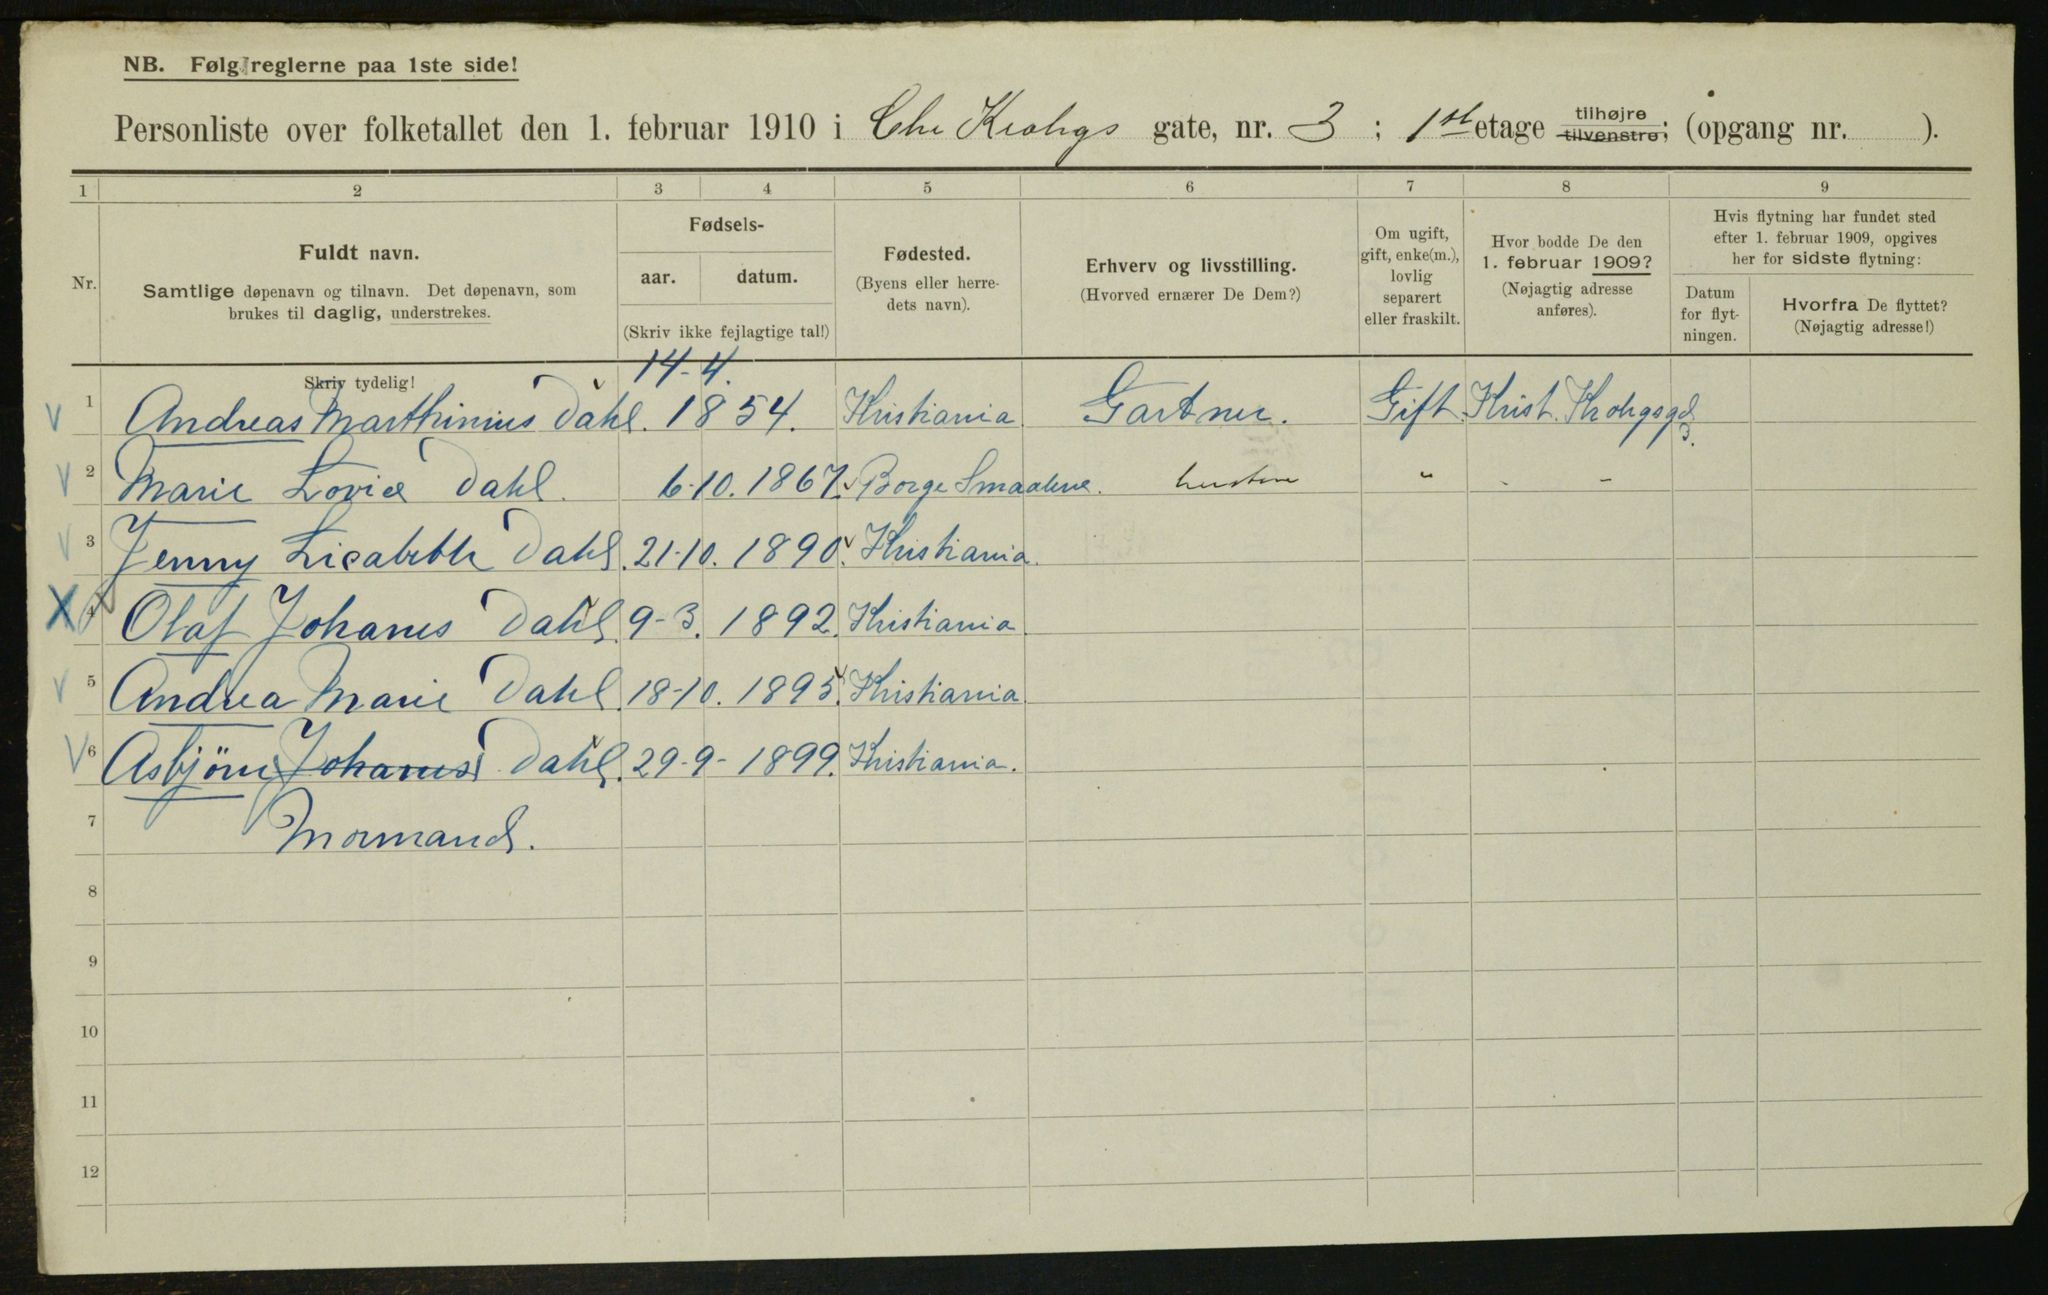 NB. Følg reglerne paa 1ste side!
Personliste over folketallet den 1. februar 1910 i Chr Krohgs gate, nr. 3 ; 1st etage tilhøjre tilvenstre; (opgang nr. ).
1 2 3 4 5 6 7 8 9
Nr.
Fuldt navn.
Samtlige døpenavn og tilnavn. Det døpenavn, som
brukes til daglig, understrekes.
Fødsels-
aar. datum.
(Skriv ikke fejlagtige tal!)
Fødested.
(Byens eller herre-
dets navn).
Erhverv og livsstilling.
(Hvorved ernærer De Dem?)
Om ugift,
gift, enke(m.),
lovlig
separert
eller fraskilt.
Hvor bodde De den
1. februar 1909?
(Nøjagtig adresse
anføres).
Hvis flytning har fundet sted
efter 1. februar 1909, opgives
her for sidste flytning:
Datum
for flyt-
ningen.
Hvorfra De flyttet?
(Nøjagtig adresse!)
Skriv tydelig!
14-4.
1 Andreas Marthinius Dahl. 1854. Kristiania. Gartner. Gift. Krist. Krohgsgd 3.
2 Marie Lovise Dahl. 6-10. 1867. Borge Smaalene. hustru " - -
3 Jenny Lisabeth Dahl. 21-10. 1890. Kristiania.
4 Olaf Johanes Dahl. 9-3. 1892. Kristiania.
5 Andrea Marie Dahl. 18-10. 1895. Kristiania.
6 Asbjörn Johanes Dahl. 29-9- 1899. Kristiania.
7 Normand.
8
9
10
11
12